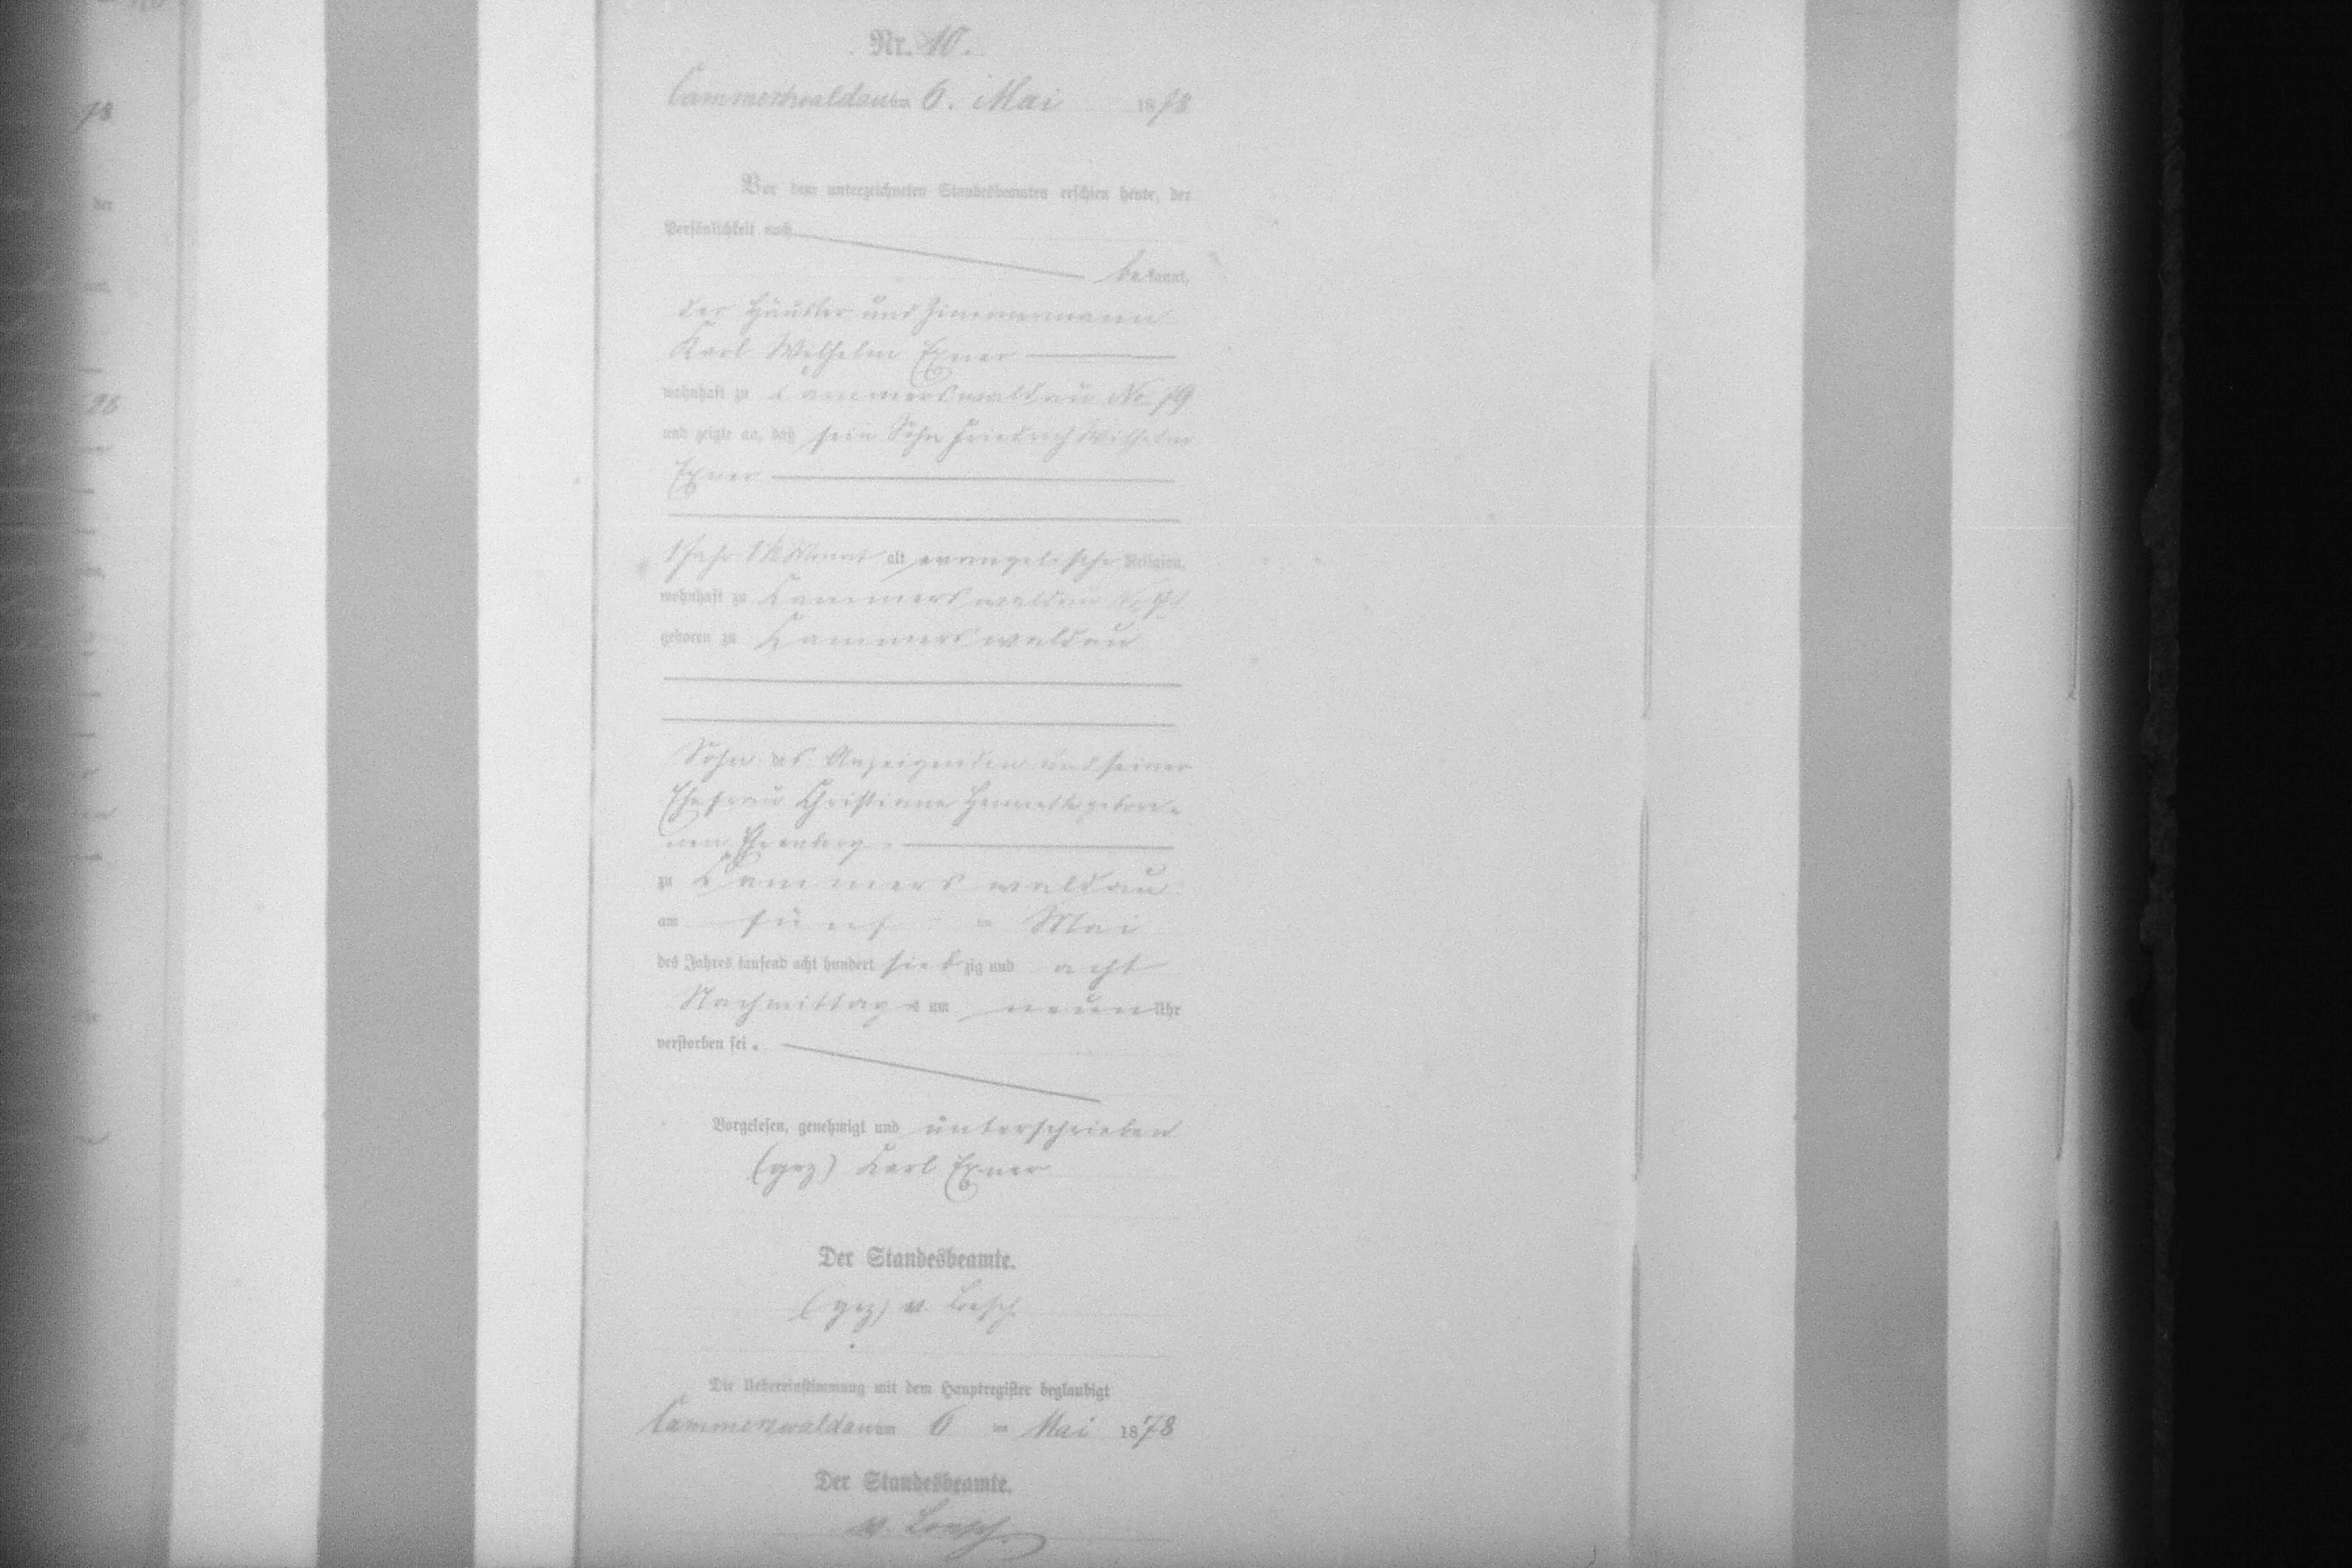 Nr. 10.
Cammerswaldau am 6. Mai 1878
Vor dem unterzeichneten Standesbeamten erschien heute, der
Persönlichkeit nach
bekannt,
der Häusler und Zimmermann
Karl Wilhelm Exner
wohnhaft zu Cammerswaldau No 79
und zeigte an, daß sein Sohn Friedrich Wilhelm
Exner
1 Jahr Monat alt, evangelischer Religion,
wohnhaft zu Cammerswaldau
geboren zu Cammerswaldau
Sohn des Anzeigenden und seiner
Ehefrau Christiane Henriette gebore-
nen Ehrenberg
zu Cammerswaldau
am fünf ten Mai
des Jahres tausend acht hundert siebzig und acht
Nachmittags um neun Uhr
verstorben sei.
Vorgelesen, genehmigt und unterschrieben
(gez) Karl Exner
Der Standesbeamte.
(gez) v. Loesch
Die Uebereinstimmung mit dem Hauptregister beglaubigt
Cammerswaldau am 6 ten Mai 1878
Der Standesbeamte.
v. Loesch